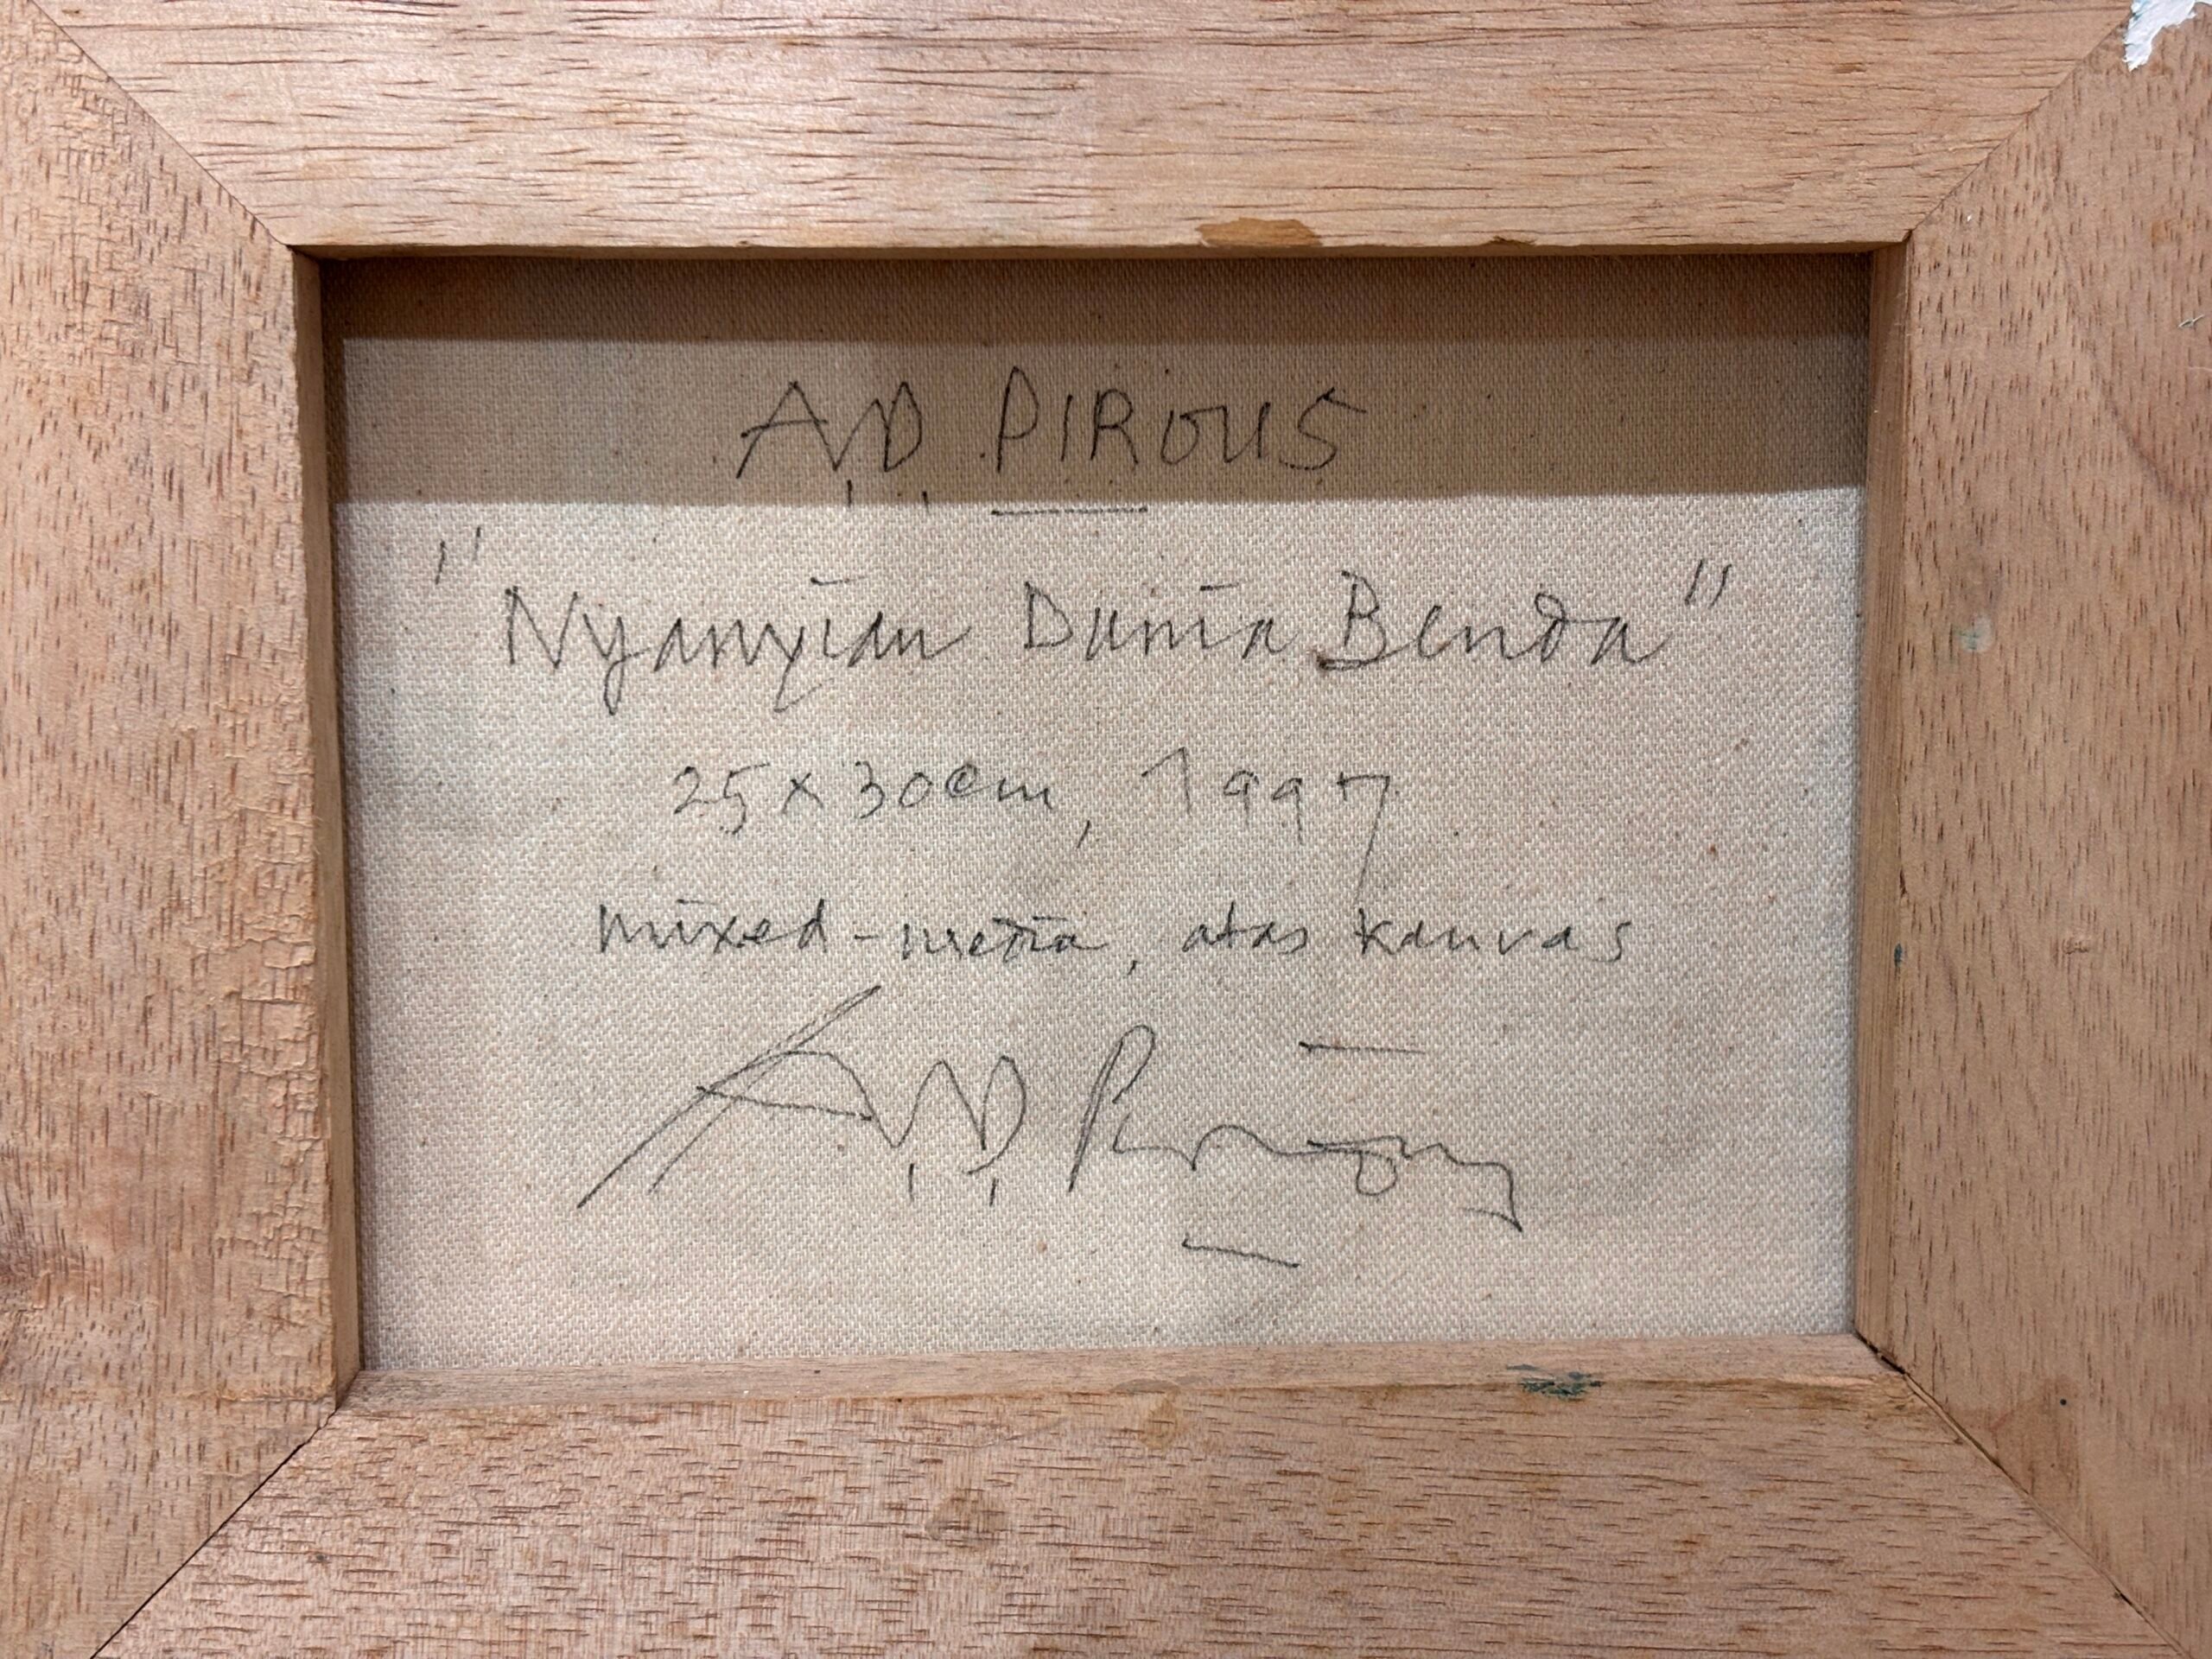 A.D. PIROUS
"Nyanyian Dunia Benda"
25 x 30 cm, 1997
mixed-media, atas kanvas
A.D. Pirous